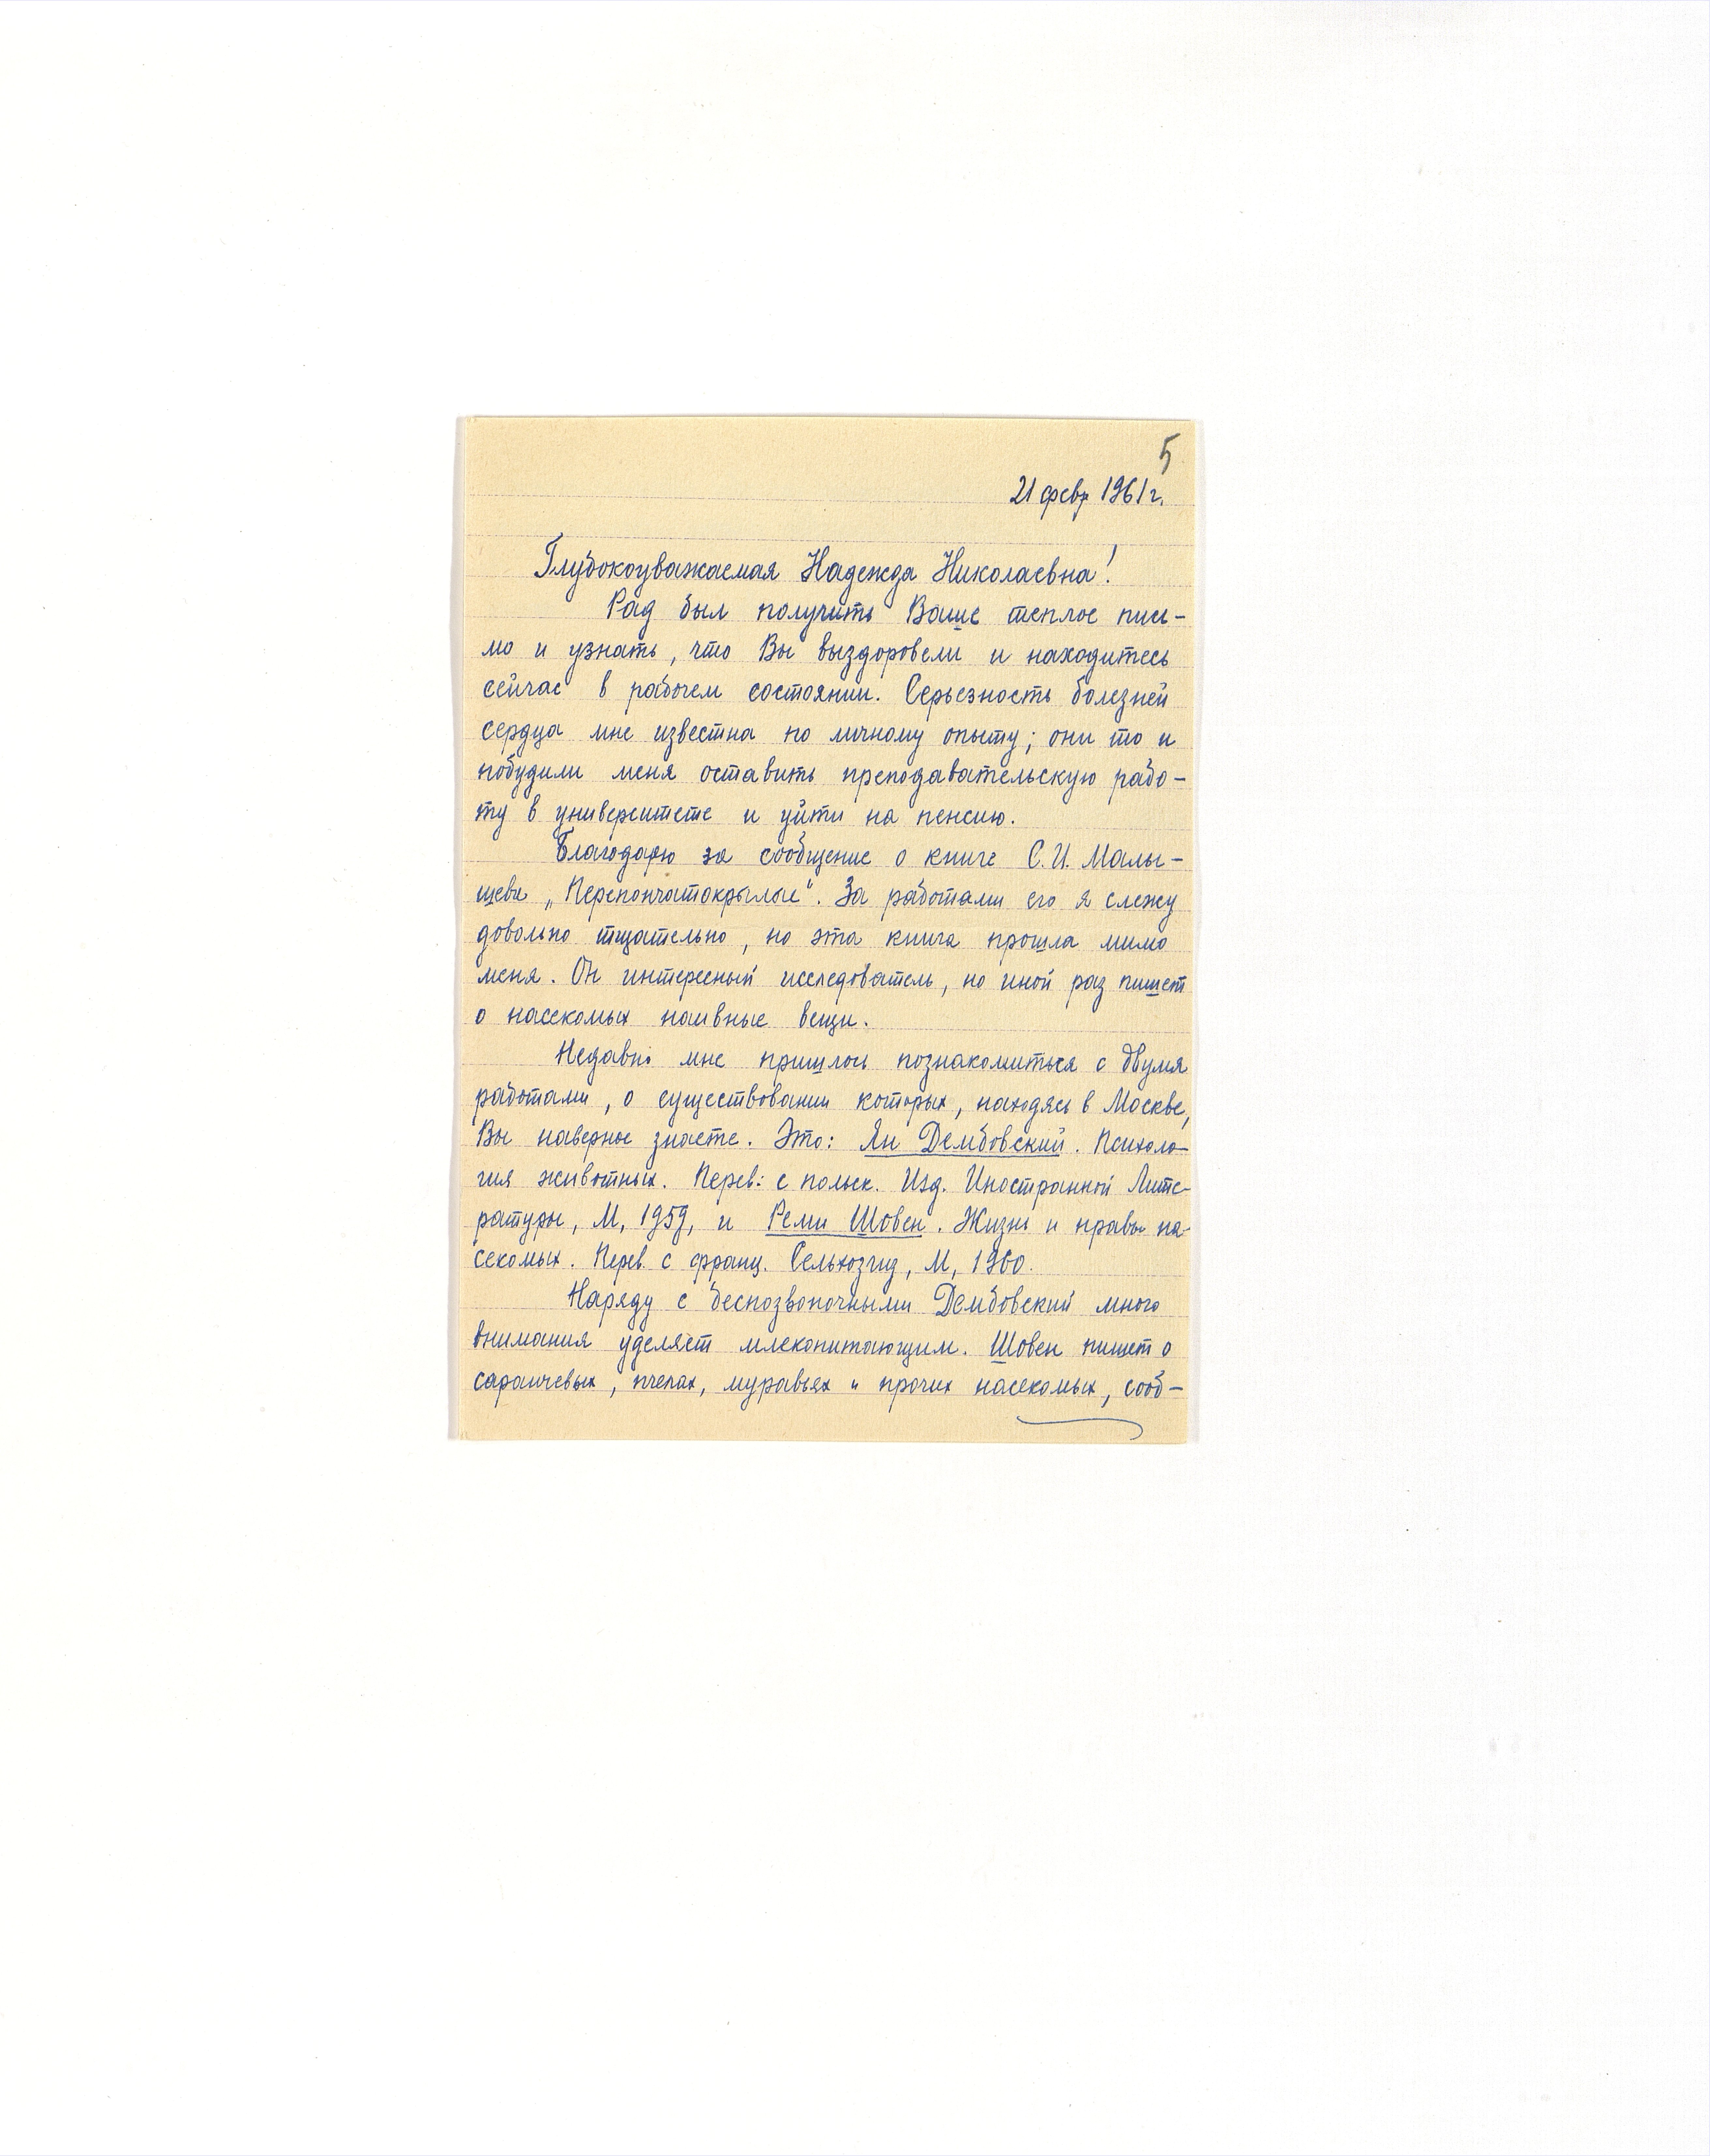 5
21 февр 1961 г.
Глубокоуважаемая Надежда Николаевна!
Рад был получить Ваше теплое пись-
мо и узнать, что Вы выздоровели и находитесь
сейчас в рабочем состоянии. Серьезность болезней
сердца мне известна по личному опыту; они то и
побудили меня оставить преподавательскую рабо-
ту в университете и уйти на пенсию.
Благодарю за сообщение о книге С.И. Малы-
шева „Перепончатокрылые“. За работами его я слежу
довольно тщательно, но эта книга прошла мимо
меня. Он интересный исследователь, но иной раз пишет
о насекомых наивные вещи.
Недавно мне пришлось познакомиться с двумя
работами, о существовании которых, находясь в Москве,
Вы наверное знаете. Это: Ян Дембовский. Психоло-
гия животных. Перев. с польск. Изд. Иностранной Лите-
ратуры, М, 1959, и Реми Шовен. Жизнь и нравы на-
секомых. Перев. с франц. Сельхозгид, М, 1960.
Наряду с беспозвоночными Дембовский много
внимания уделяет млекопитающим. Шовен пишет о
саранчевых, пчелах, муравьях и прочих насекомых, сооб-